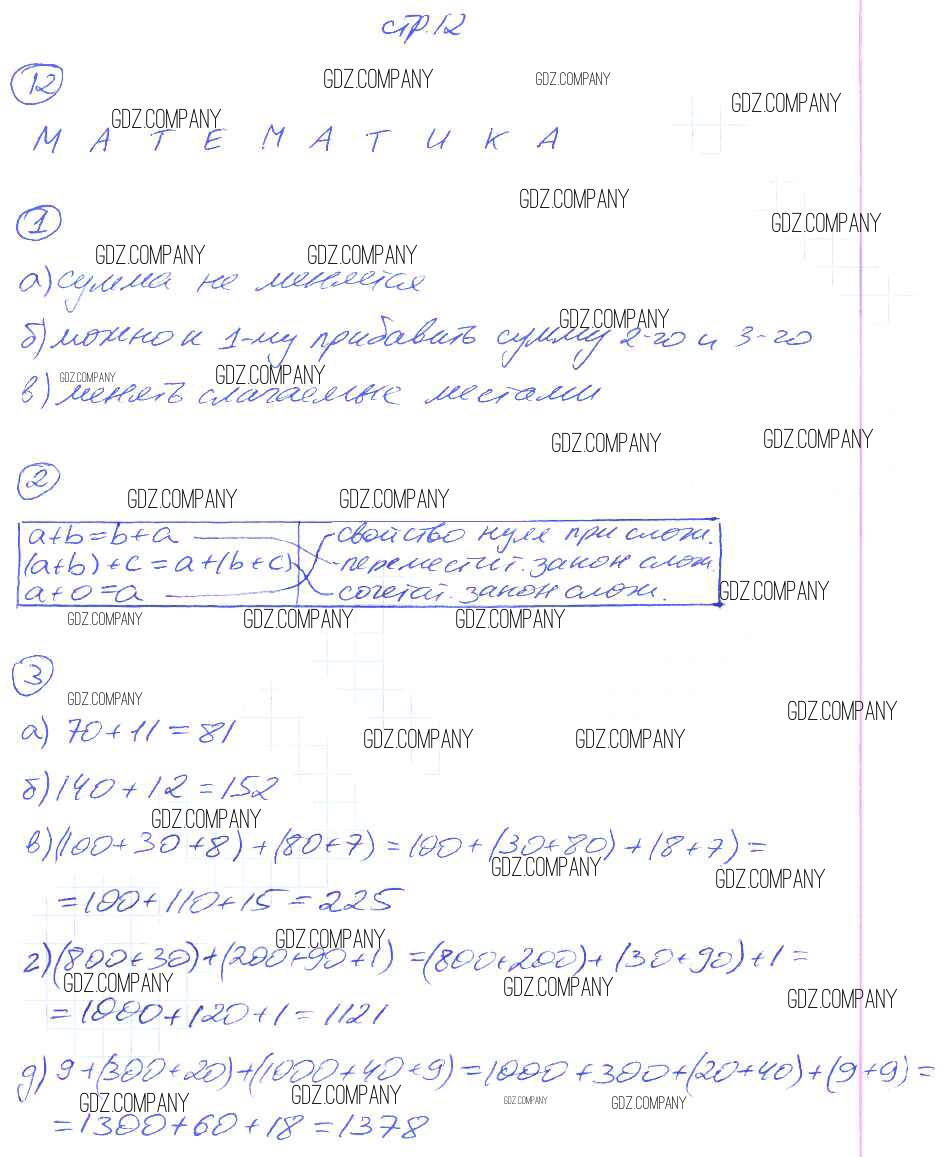 стр.12
12
GDZ.COMPANY GDZ.COMPANY GDZ.COMPANY
GDZ.COMPANY
М А Т Е М А Т И К А
GDZ.COMPANY
1
GDZ.COMPANY
GDZ.COMPANY GDZ.COMPANY
а) сумма не меняется
GDZ.COMPANY
б) можно к 1-му прибавить сумму 2-го и 3-го
GDZ.COMPANY GDZ.COMPANY
в) менять слагаемые местами
GDZ.COMPANY GDZ.COMPANY
2
GDZ.COMPANY GDZ.COMPANY
a+b=b+a свойство нуля при слож.
(a+b)+c=a+(b+c) переместит. закон слож.
a+0=a сочетат. закон слож.
GDZ.COMPANY
GDZ.COMPANY GDZ.COMPANY GDZ.COMPANY
3
GDZ.COMPANY
GDZ.COMPANY
а) 70+11=81
GDZ.COMPANY GDZ.COMPANY
б) 140+12=152
GDZ.COMPANY
в) (100+30+8)+(80+7)=100+(30+80)+(8+7)=
GDZ.COMPANY GDZ.COMPANY
=100+110+15=225
GDZ.COMPANY
г) (800+30)+(200+90+1)=(800+200)+(30+90)+1=
GDZ.COMPANY GDZ.COMPANY GDZ.COMPANY
=1000+120+1=1121
д) 9+(300+20)+(1000+40+9)=1000+300+(20+40)+(9+9)=
GDZ.COMPANY GDZ.COMPANY GDZ.COMPANY GDZ.COMPANY
=1300+60+18=1378